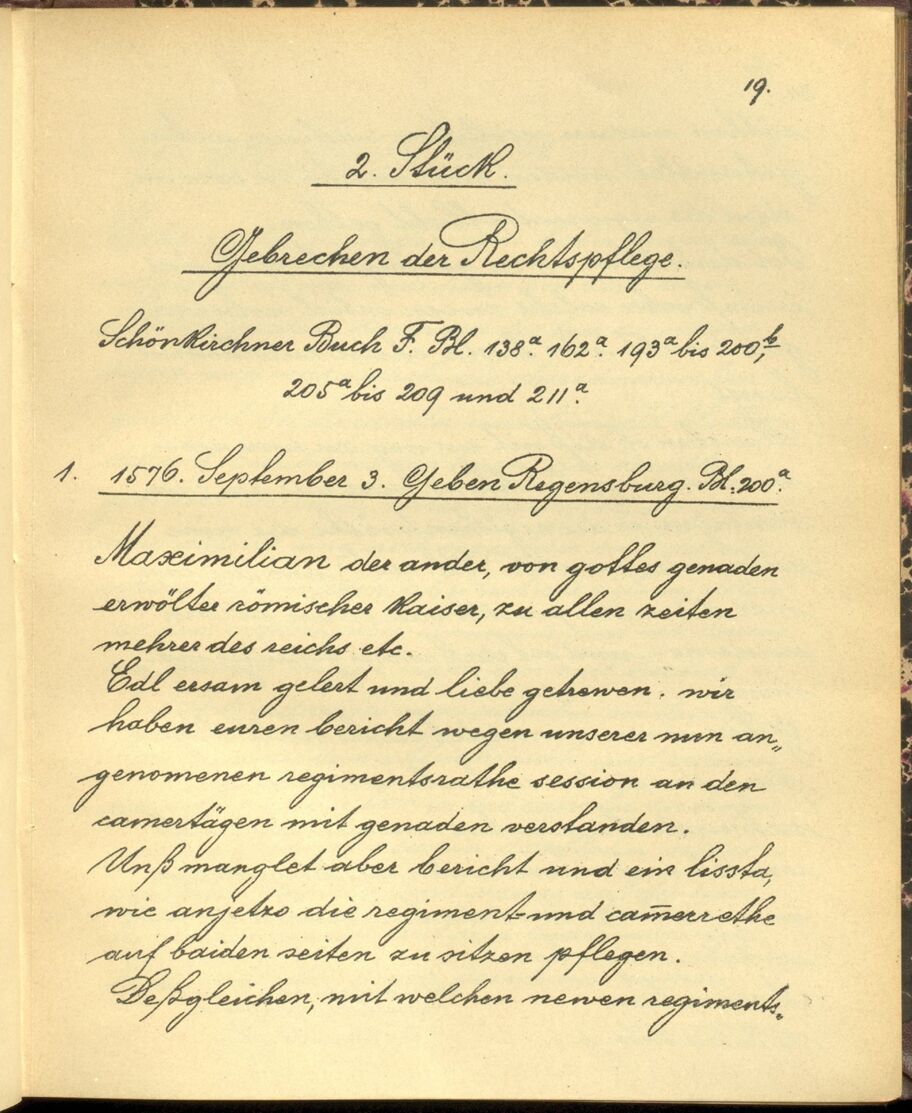 19.
2. Stück.
Gebrechen der Rechtspflege.
Schönkirchner Buch F. Bl. 138a. 162a. 193a bis 200b,
205a bis 209 und 211a.
1. 1576. September 3. Geben Regensburg. Bl. 200a.
Maximilian der ander, von gottes genaden
erwölter römischer Kaiser, zu allen zeiten
mehrer des reichs etc.
Edl ersam gelert und liebe getrewen. wir
haben euren bericht wegen unserer nun an„
genomenen regimentsrathe session an den
camertägen mit genaden verstanden.
Unß manglet aber bericht und ein lissta,
wie anjetzo die regiment- und cam̅errethe
auf baiden seiten zu sitzen pflegen.
Deßgleichen, mit welchen newen regiments„